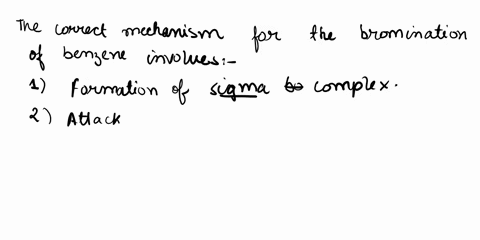 The correct mechanism for the bromination
of benzene involves:-
1) Formation of sigma complex.
2) Attack